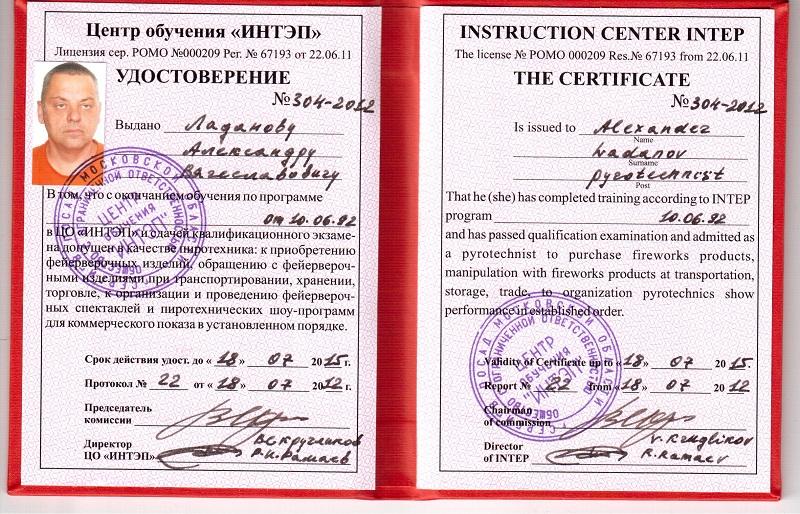 Центр обучения «ИНТЭП»
Лицензия сер. РОМО №000209 Рег. № 67193 от 22.06.11
УДОСТОВЕРЕНИЕ
№304-2012
Выдано Ладанову
Александру
Вячеславовичу
В том, что с окончанием обучения по программе
от 10.06.92
в ЦО «ИНТЭП» и сдачей квалификационного экзаме-
на допущен в качестве пиротехника: к приобретению
фейерверочных изделий, обращению с фейерверочными
ными изделиями при транспортировании, хранении,
торговле, к организации и проведению фейервероч-
ных спектаклей и пиротехнических шоу-программ
для коммерческого показа в установленном порядке.
Срок действия удост. до «18» 07 2015 г.
Протокол № 22 от «18» 07 2012 г.
Председатель
комиссии
В.С.Кругликов
Директор
ЦО «ИНТЭП»
Р.И.Рамаев
МОСКОВСКОЙ
ЦЕНТР
ОБУЧЕНИЯ
"ИНТЭП"
INSTRUCTION CENTER INTEP
The license № РОМО 000209 Res.№ 67193 from 22.06.11
THE CERTIFICATE
№304-2012
Is issued to Alexander
Name
Ladanov
Surname
pyrotechnist
Post
That he (she) has completed training according to INTEP
program 10.06.92
and has passed qualification examination and admitted as
a pyrotechnist to purchase fireworks products,
manipulation with fireworks products at transportation,
storage, trade, to organization pyrotechnics show
performance in established order.
Validity of Certificate up to «18» 07 2015.
Report № 22 from «18» 07 2012
Chairman
of commission
V. Kruglikov
Director
of INTEP
R. Ramaev
ПОСАД МОСКОВСКОЙ ОБЛАСТИ
ОГРАНИЧЕННОЙ ОТВЕТСТВЕННОСТЬЮ
ЦЕНТР
ОБУЧЕНИЯ
"ИНТЭП"